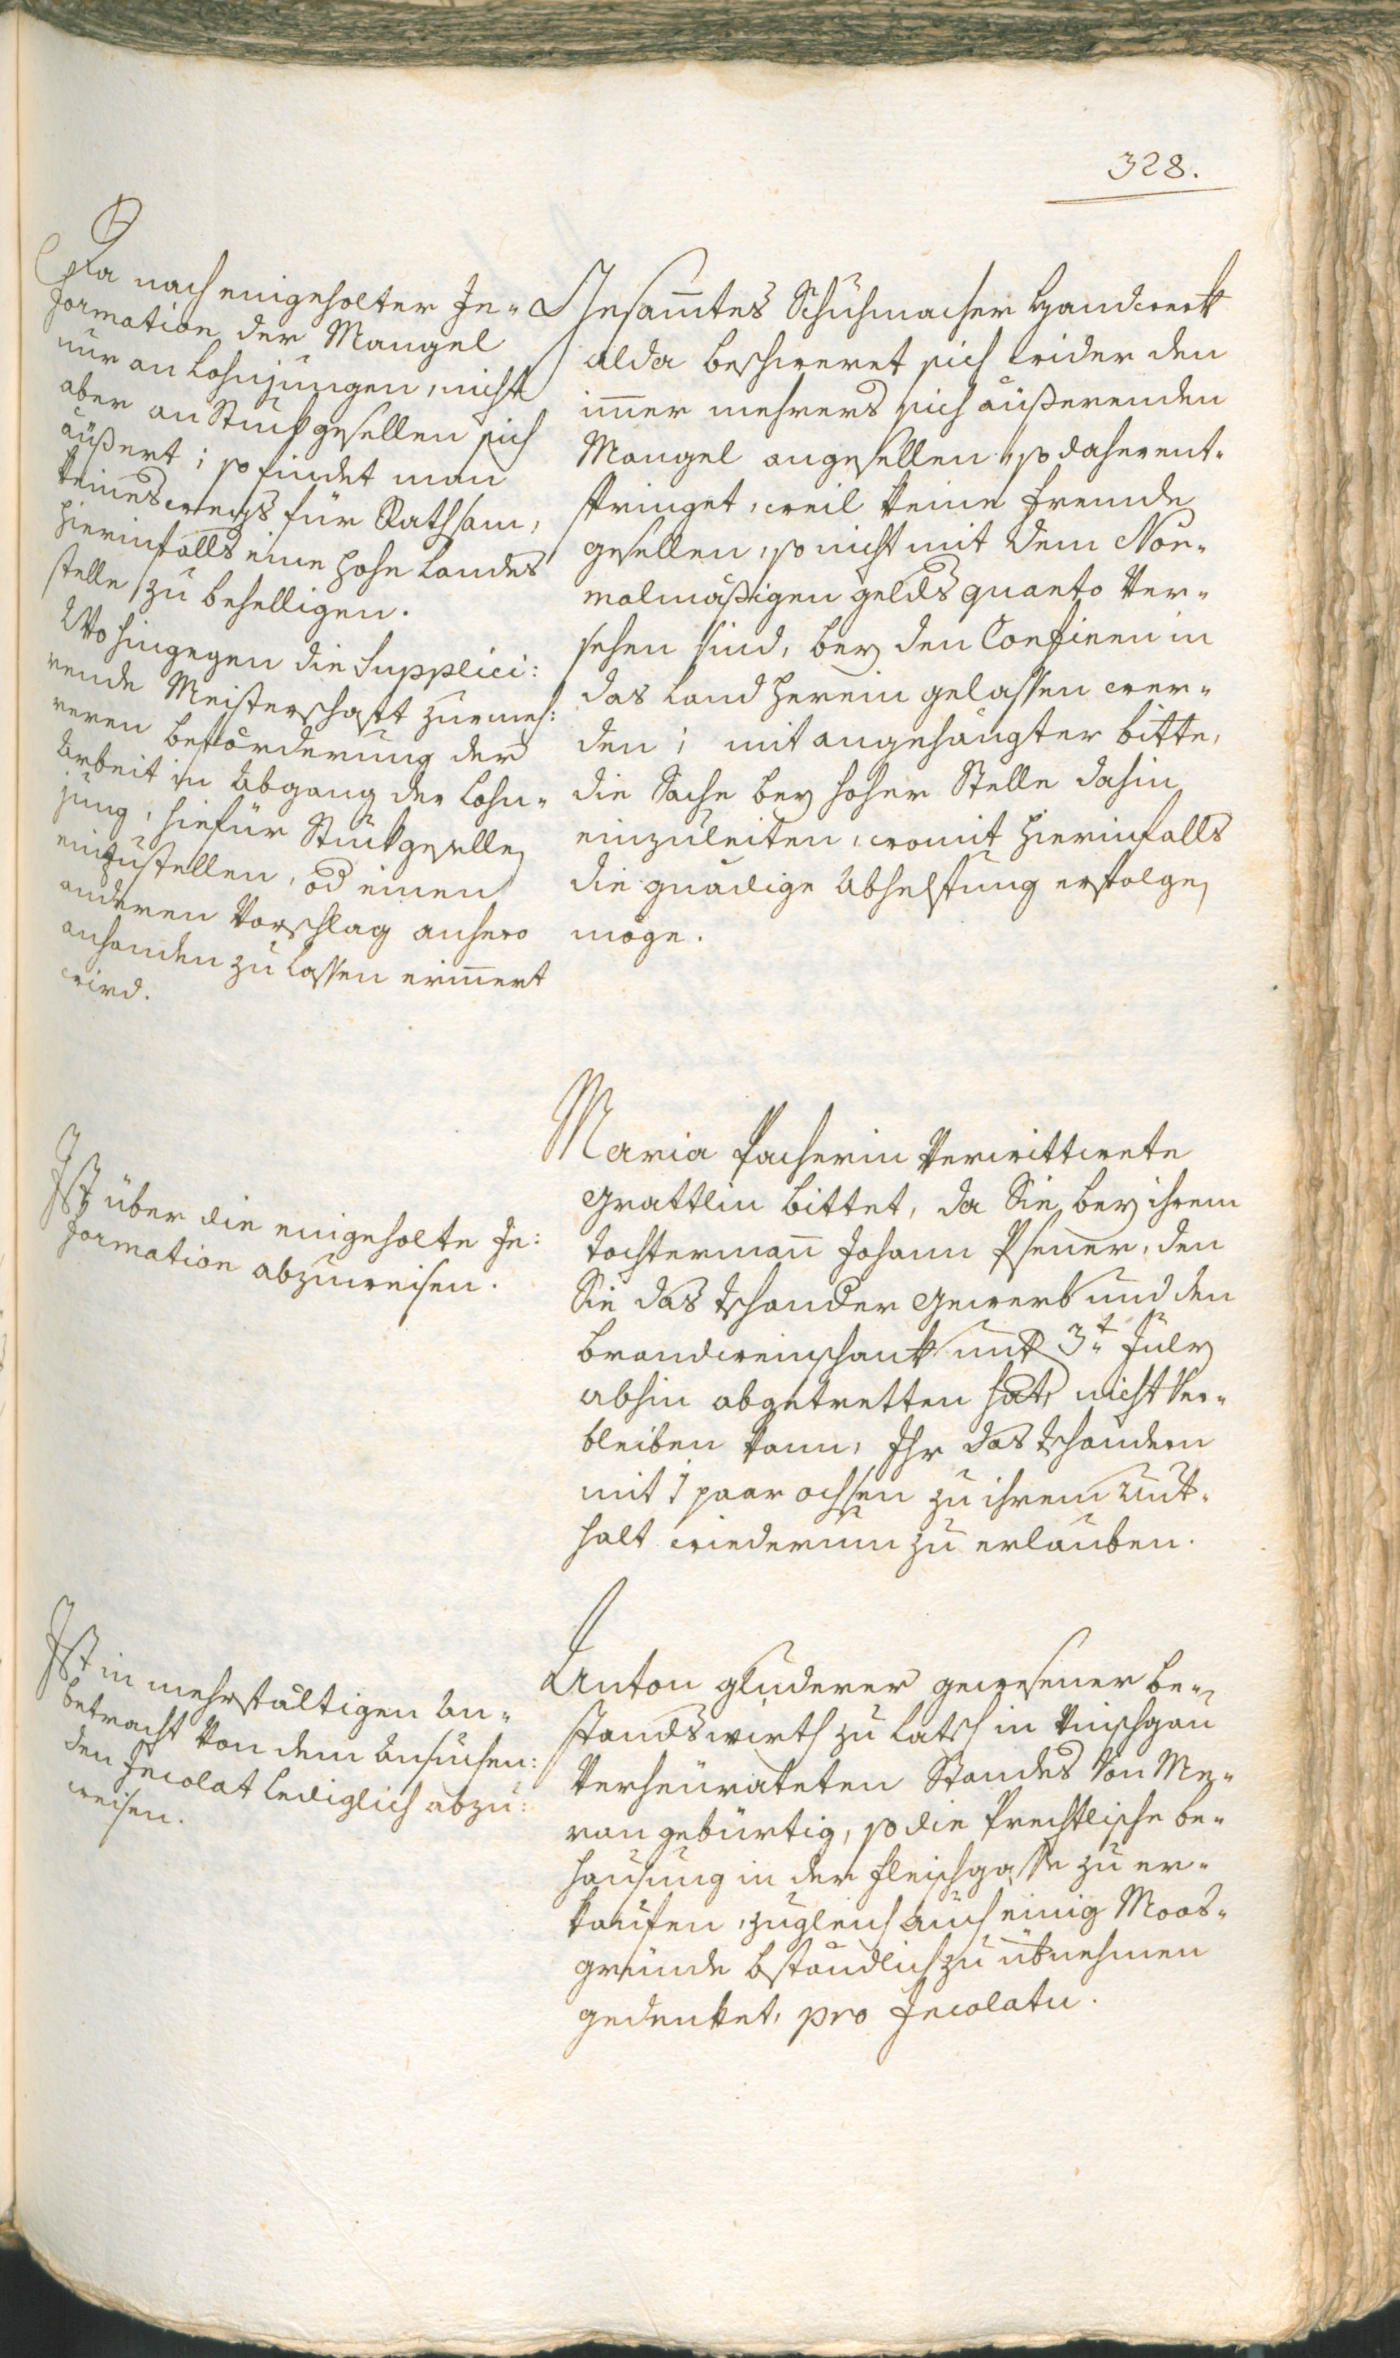 328.
Da nach eingeholter In-
formation der Mangel
nur an Lohnjungen, nicht
aber an Stuckgesellen sich
äußert; so findet man
keineswegs für Rathsam,
hierinfalls eine hohe Landes
stelle zu behelligen.
Wo hingegen die Supplici:
rende Meisterschaft zur meh:
reren beförderung der
Arbeit in Abgang der Lohn-
jung, hiefür Stuckgesellen
einzustellen, od einen
anderen Vorschlag anhero
anhanden zu lassen erinnert
wird.
Gesam̄tes Schuhmacher Handwerk
alda beschweret sich wider den
im̄er mehrers sich äußerenden
Mangel an gesellen, so daher ent-
springet, weil keine fremde
gesellen, so nicht mit dem Nor-
malmäßigen gelds quanto ver-
sehen sind, bey den Confinen in
das Land herein gelassen wer-
den; mit angehängter bitte,
die Sache bey hoher Stelle dahin
einzuleiten, womit hierinfalls
die gnädige Abhelfung erfolgen
möge.
Ist über die eingeholte In:
formation abzuweisen.
Maria Pacherin verwittwete
Grattlin bittet, da Sie bey ihrem
Tochterman̄ Johann Psenner, den
Sie das Tschander Gewerb und den
brandweinschank unt 3t July
abhin abgetretten hat, nicht ver-
bleiben kann, Ihr das Tschandern
mit 1 paar ochsen zu ihrem Unt-
halt wiederum zu erlauben.
Ist in mehrfältigen An-
betracht von dem Ansuchen:
den Incolat lediglich abzu:
weisen.
Anton Gluderer gewesener be-
standswirth zu Latsch in Vinschgau
verheürateten Standes von Me-
ran gebürtig, so die Prechtlische be-
hausung in der fleischgasse zu er-
kaufen, zugleich auch einig Moos-
gründe bständlich zu übnehmen
gedenket, pro Incolatu.